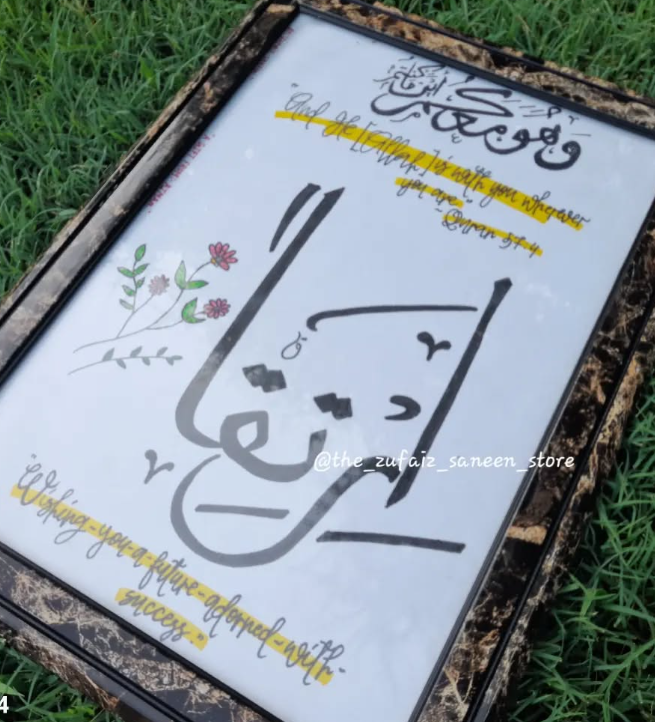 وهو معكم أين ما كنتم
"And He [Allah] is with you wherever
you are"
-Quran 57:4
ارتقا
@the_zufaiz_saneen_store
"Wishing-you-a-future-adorned-with-
success."
4